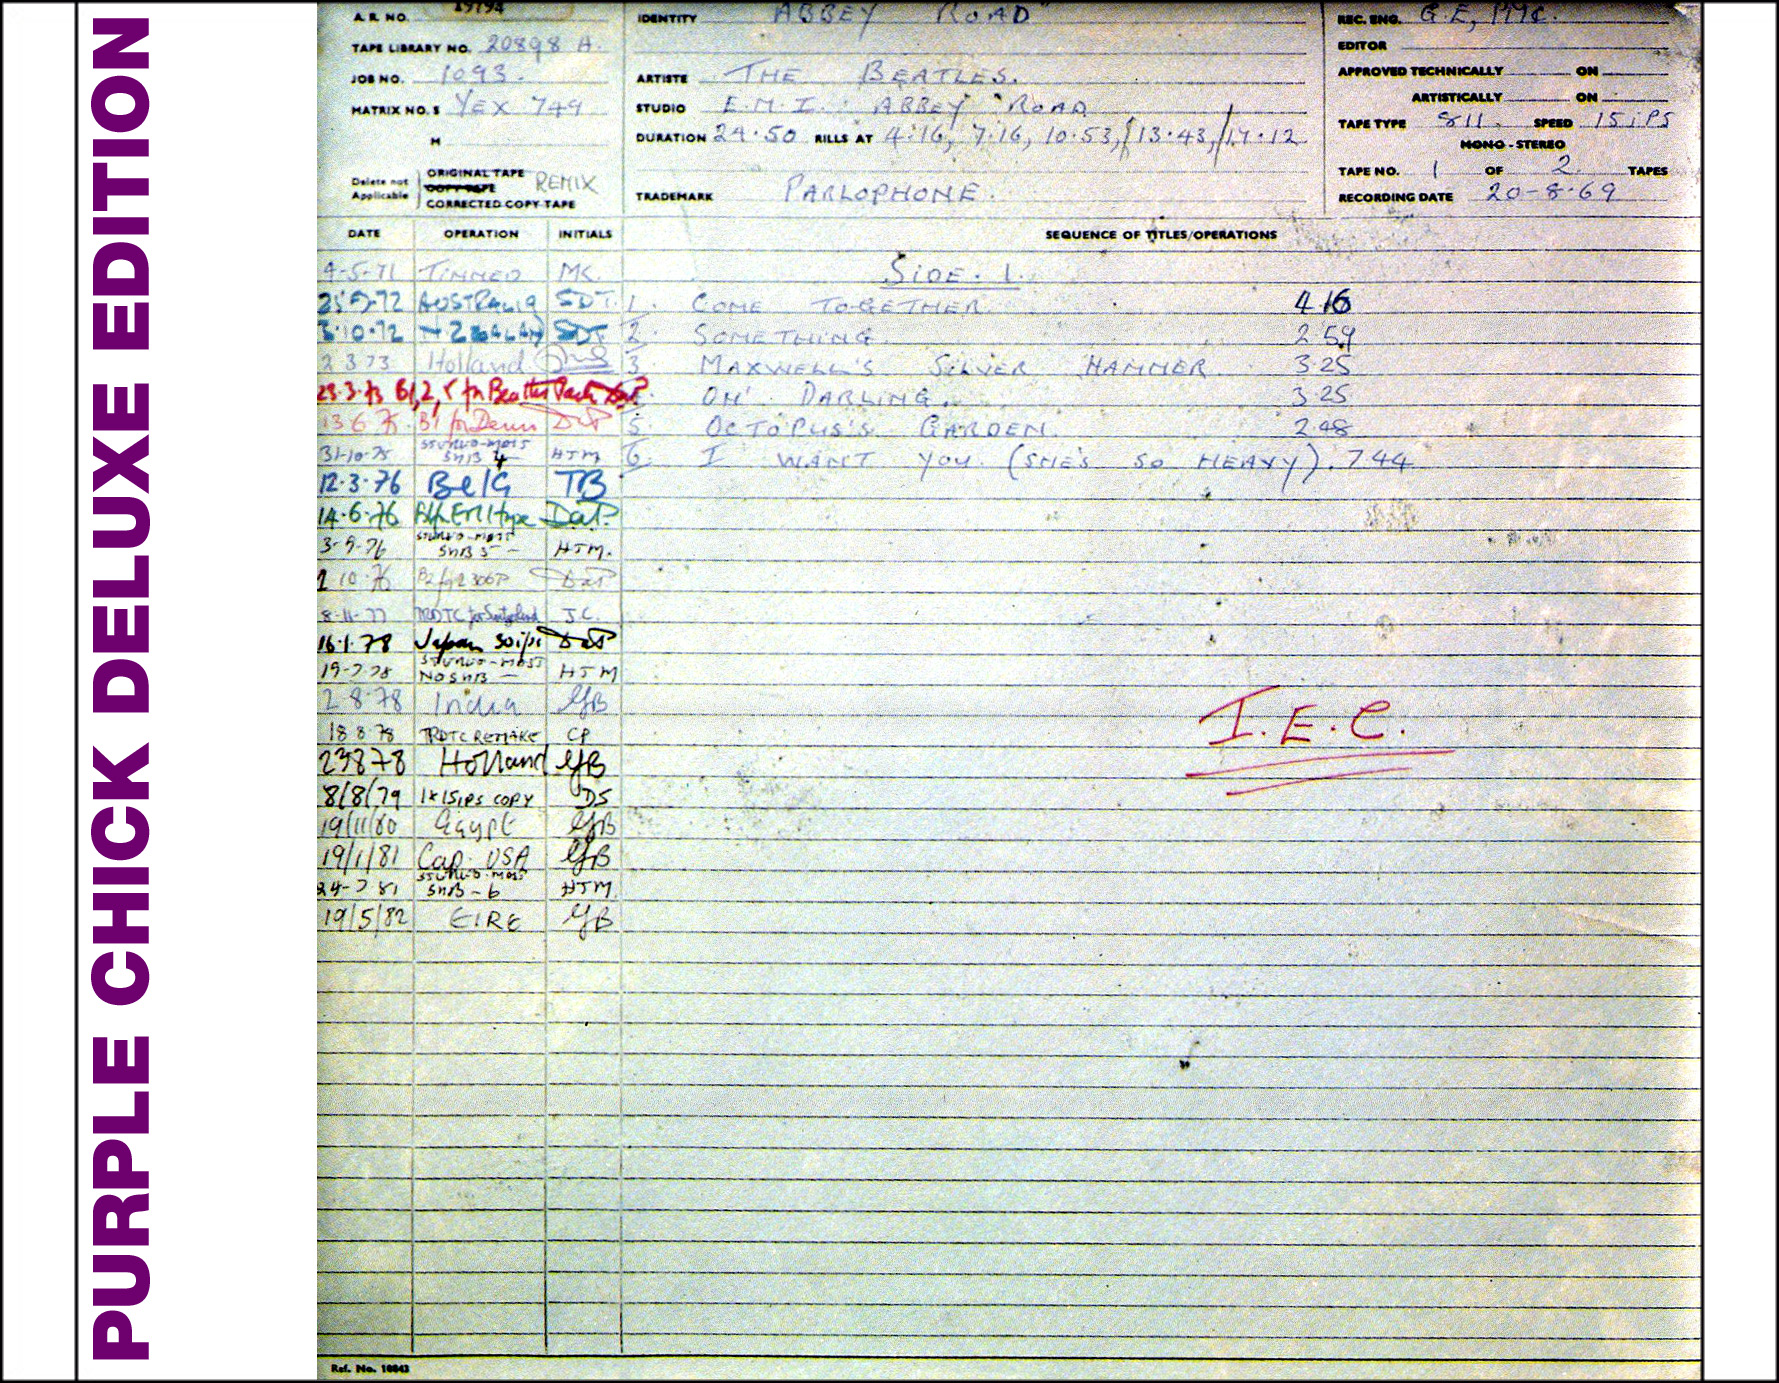 PURPLE CHICK DELUXE EDITION
A.R. NO. 19794
TAPE LIBRARY NO. 20898 A.
JOB NO. 1093.
MATRIX NO. S YEX 749
M
Delete not Applicable
ORIGINAL TAPE
COPY TAPE REMIX
CORRECTED COPY TAPE
IDENTITY ABBEY ROAD"
ARTISTE THE BEATLES.
STUDIO E.M.I. ABBEY ROAD
DURATION 24.50 RILLS AT 4.16, 7.16, 10.53, 13.43, 17.12
TRADEMARK PARLOPHONE.
REC. ENG. G.E, PMC.
EDITOR
APPROVED TECHNICALLY ON
ARTISTICALLY ON
TAPE TYPE 811. SPEED 15 iPS
MONO - STEREO
TAPE NO. 1 OF 2 TAPES
RECORDING DATE 20-8-69
DATE OPERATION INITIALS SEQUENCE OF TITLES/OPERATIONS
4-5-71 TINNED MK. SIDE. 1.
25 9 72 AUSTRALIA SDT. 1. COME TOGETHER. 4 16
3.10.72 N ZEALAND SDT 2. SOMETHING. 2.59
2 3 73 Holland 3. MAXWELL'S SILVER HAMMER. 3.25
OH! DARLING. 3.25
13 6 75 DaP 5. OCTOPUS'S GARDEN. 2.48
31-10-75 SNB 4 HTM 6. I WANT YOU. (SHE'S SO HEAVY). 7.44
12.3.76 Belg TB
14.6.76 EMI tape DaP.
3-9-76 SNB 5 - HTM.
10 76 DaP
8-11-77 TRDTC for Switzerland J.C.
16.1.78 Japan 30 ips DaP
19-7-78 NO SNB - HTM
2 8 78 India GB
I.E.C.
18 8 78 TRDTC REMAKE CP
23 8 78 Holland GB
8/8/79 1x15ips COPY DS
19/11/80 Egypt GB
19/1/81 Cap. USA GB
24-7 81 SNB - 6 HTM.
19/5/82 EIRE GB
Ref. No. 10843